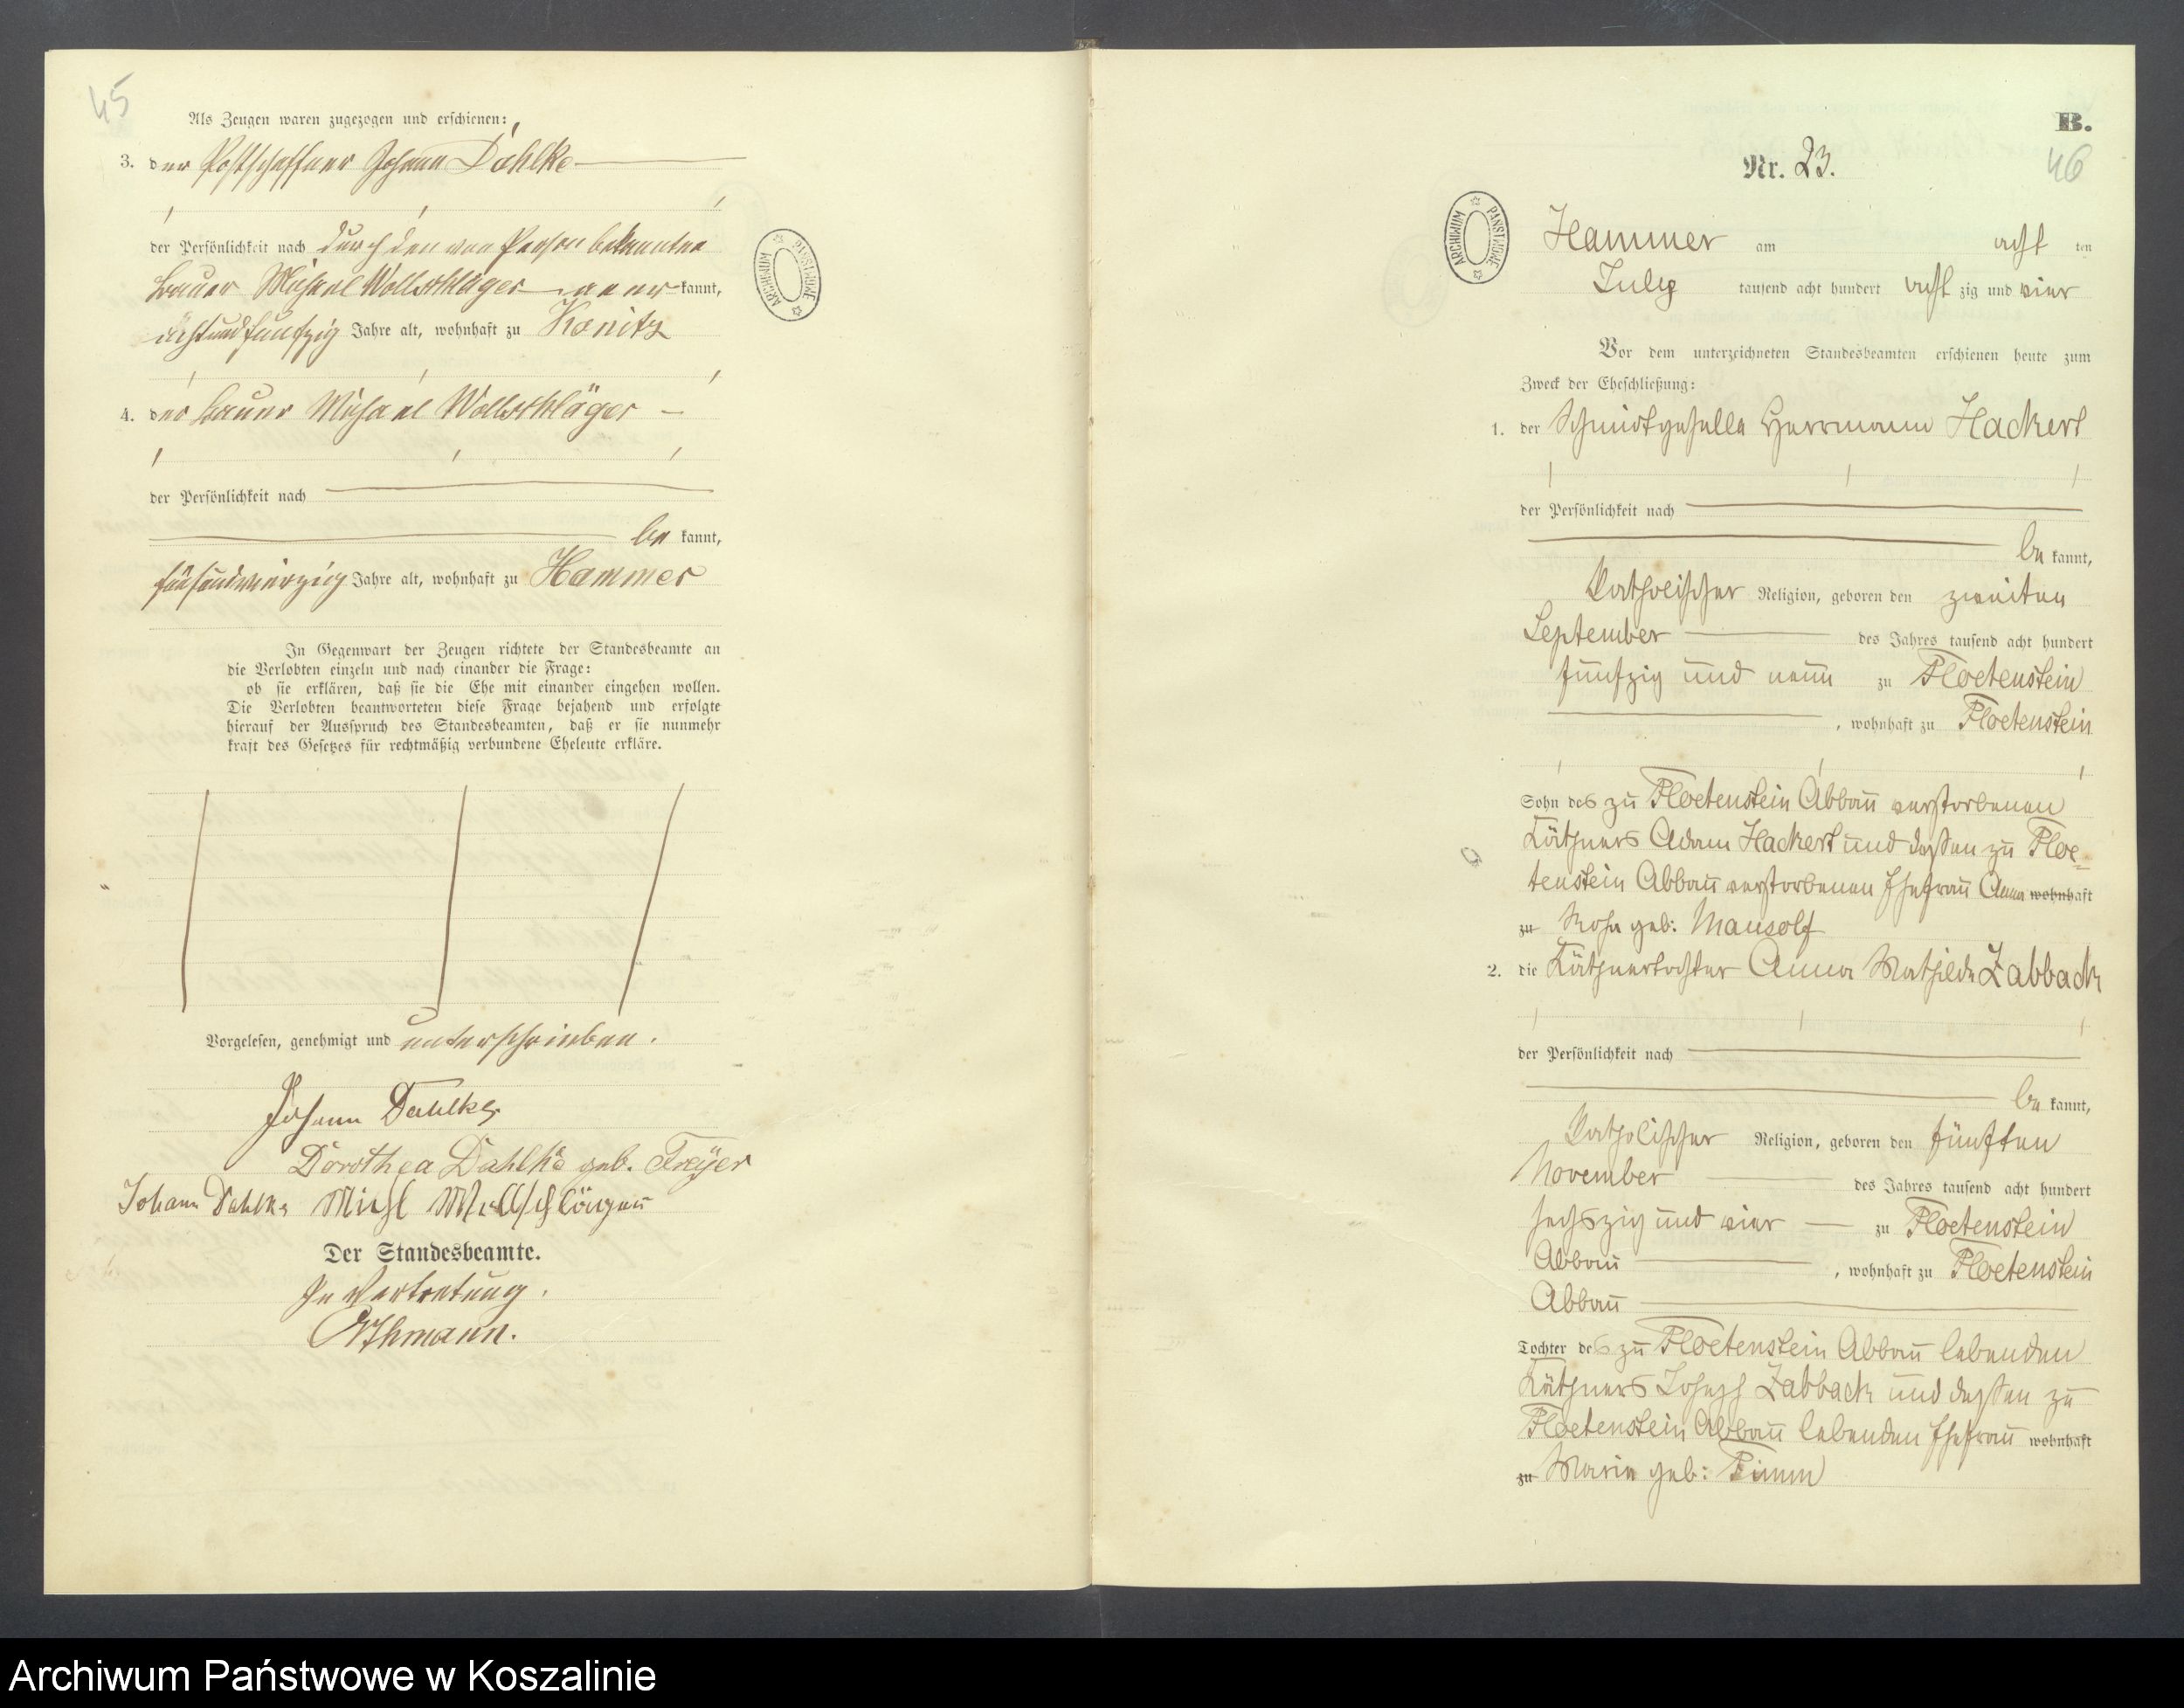 45
Als Zeugen waren zugezogen und erschienen:
3. der Postschaffner Johann Dahlke
der Persönlichkeit nach durch den von Person bekannten
Bauer Michael Wollschläger anerkannt,
achtundfunfzig Jahre alt, wohnhaft zu Konitz
4. der Bauer Michael Wollschläger
der Persönlichkeit nach
be kannt,
fünfundvierzig Jahre alt, wohnhaft zu Hammer
In Gegenwart der Zeugen richtete der Standesbeamte an
die Verlobten einzeln und nach einander die Frage:
ob sie erklären, daß sie die Ehe mit einander eingehen wollen.
Die Verlobten beantworteten diese Frage bejahend und erfolgte
hierauf der Ausspruch des Standesbeamten, daß er sie nunmehr
kraft des Gesetzes für rechtmäßig verbundene Eheleute erkläre.
Vorgelesen, genehmigt und unterschrieben.
Johann Dahlke
Dorothea Dahlke geb. Freÿer
Johann Dahlke Michl Wollschläger
Der Standesbeamte.
In Vertretung.
ARCHIWUM PAŃSTWOWE
B.
Nr. 23.
46
ARCHIWUM PAŃSTWOWE
Hammer am acht ten
July tausend acht hundert acht zig und vier
Vor dem unterzeichneten Standesbeamten erschienen heute zum
Zweck der Eheschließung:
1. der Schmidtgeselle Herrmann Hackert
der Persönlichkeit nach
be kannt,
Katholischer Religion, geboren den zweiten
September des Jahres tausend acht hundert
fünfzig und neun zu Floetenstein
, wohnhaft zu Floetenstein
Sohn des zu Floetenstein Abbau verstorbenen
Käthners Adam Hackert und dessen zu Floe=
tenstein Abbau verstorbenen Ehefrau Anna wohnhaft
zu Rosa geb: Mausolf
2. die Käthnertochter Anna Mathilde Zabback
der Persönlichkeit nach
be kannt,
Katholischer Religion, geboren den fünften
November des Jahres tausend acht hundert
sechszig und vier zu Floetenstein
Abbau , wohnhaft zu Floetenstein
Abbau
Tochter des zu Floetenstein Abbau lebenden
Käthners Joseph Zabback und dessen zu
Floetenstein Abbau lebenden Ehefrau wohnhaft
zu Maria geb: Timm
Archiwum Państwowe w Koszalinie